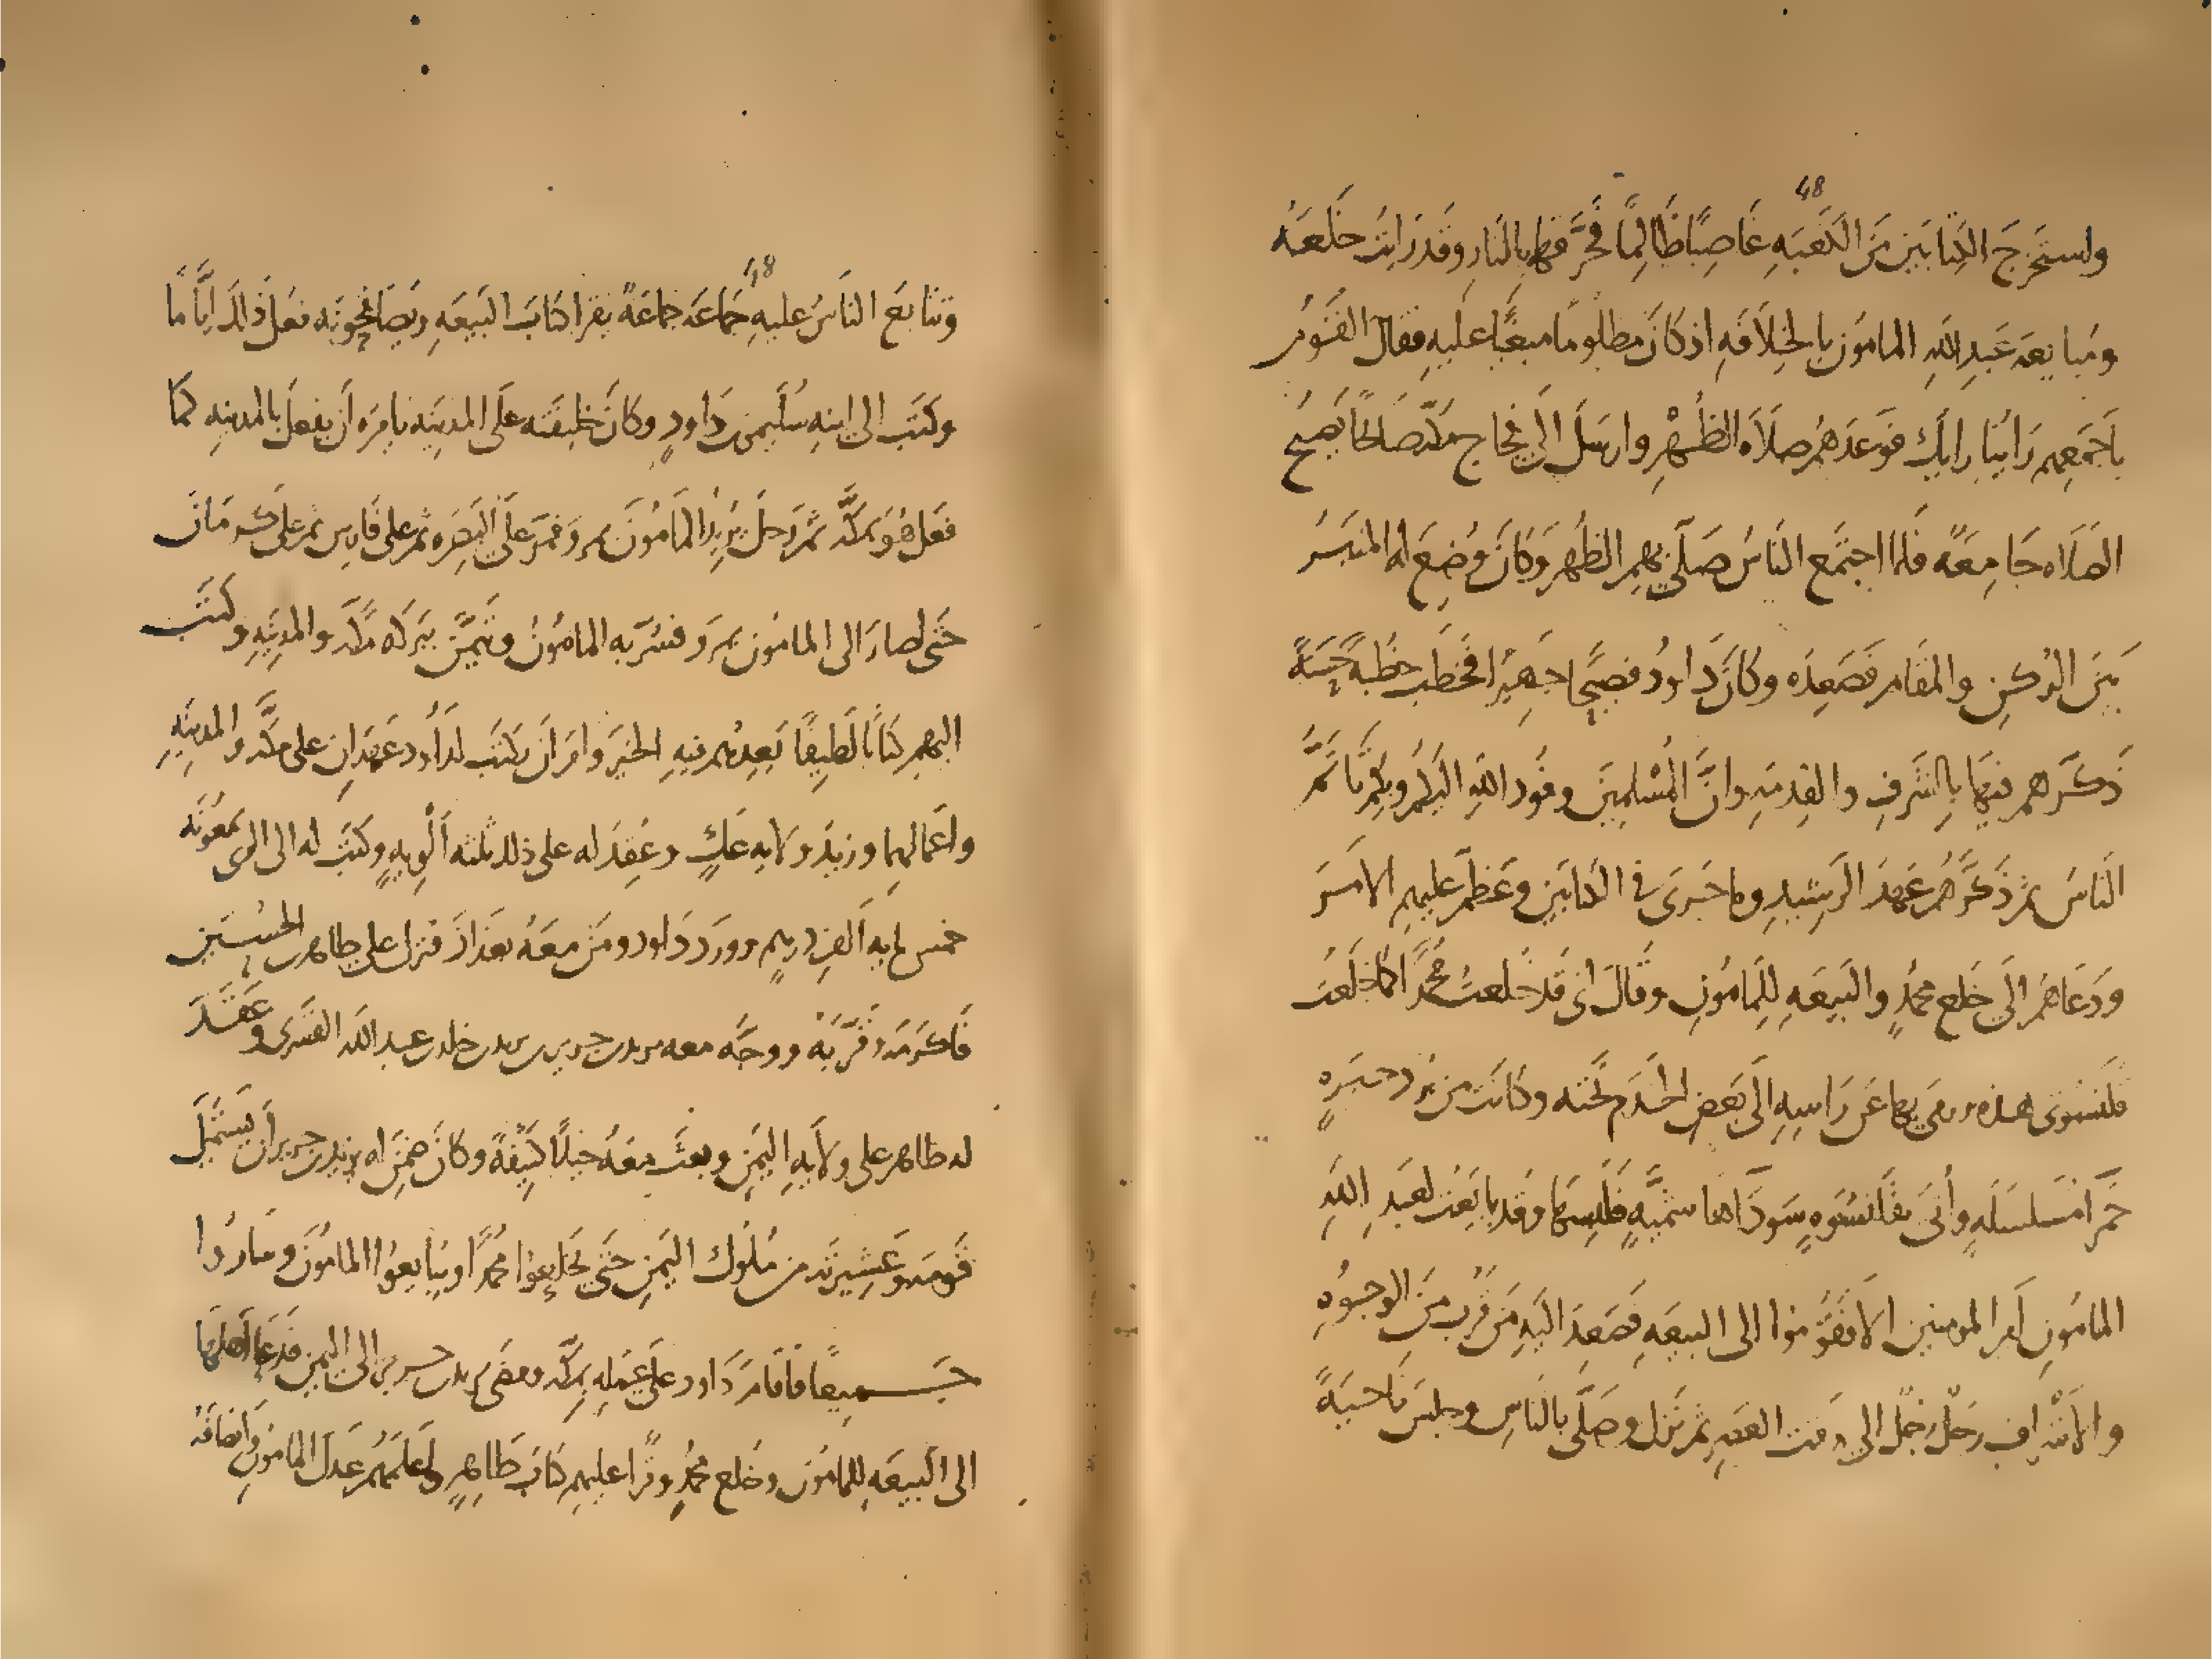 48
واستخرج الكتابين من الكعبه غاصبًا ظالمًا فحرّقهما بالنار وقد رايت خلعه
ومبايعه عبد الله المامون بالخلافه اذ كان مظلومًا مبغيًا عليه فقال القوم
باجمعهم راينا رايك فوعدهم صلاه الظهر وارسل الى فجاج مكّه صالحًا يصيح
الصلاه جامعهً فلما اجتمع الناس صلّى بهم الظهر وكان وضع له المنبر
بين الركن والمقام فصعده وكان داود فصيحًا جهيرًا فخطب خطبهً حسنهً
ذكّرهم فيها بالشرف والقدمه وانّ المسلمين وفود الله اليكم وبكم ياتمّ
الناس ثم ذكّرهم عهد الرشيد وما جرى فى الكتابين وعظّم عليهم الامر
ودعاهم الى خلع محمدٍ والبيعه للمامون وقال انى قد خلعت محمدًا كما خلعت
قلنسوتى هذه ورمى بها عن راسه الى بعض الخدم تحته وكانت من برد حبره
حمرا مسلسله وأتى بقلنسوه سودا هاشميّهٍ فلبسها وقد بايعت لعبد الله
المامون امير المومنين الا فقوموا الى البيعه فصعد اليه من قرب من الوجوه
والاشراف رجل رجل الى وقت العصر ثم نزل وصلّى بالناس وجلس ناحيهً
48
وتتابع الناس عليه جماعه جماعهً يقرا كتاب البيعه ويصافحونه ففعل ذلك ايّامًا
وكتب الى ابنه سليمن بن داود وكان خليفته على المدينه يامره ان يفعل بالمدينه كما
فعل هو بمكّه ثم رحل يريد المامون بمرو فمر على البصره ثم على فارس ثم على كرمان
حتى صار الى المامون بمرو فسُرّ به المامون وتيمّن ببركه مكّه والمدينه وكتب
اليهم كتابًا لطيفًا يعدهم فيه الخير وامر ان يكتب لداود عهدان على مكّه والمدينه
واعمالهما وزيد ولايه عكٍ وعقد له على ذلك ثلثه ألويهٍ وكتب له الى الرى بمعونه
خمس مايه الف درهم وورد داود ومن معه بغداذ فنزل على طاهر بن الحسين
فاكرمه وقرّبه ووجّه معه يزيد بن جرير بن يزيد بن خالد بن عبد الله القسرى وعقد
له طاهر على ولايه اليمن وبعث معه خيلًا كثيفهً وكان ضمن له يزيد بن جرير ان يستميل
قومه وعشيرته من ملوك اليمن حتى يخلعوا محمدًا ويبايعوا المامون وساروا
جميعًا فاقام داود على عمله بمكّه ومضى يزيد بن جرير الى اليمن فدعا اهلها
الى البيعه للمامون وخلع محمدٍ وقرا عليهم كتاب طاهرٍ واعلمهم عدل المامون وانصافه